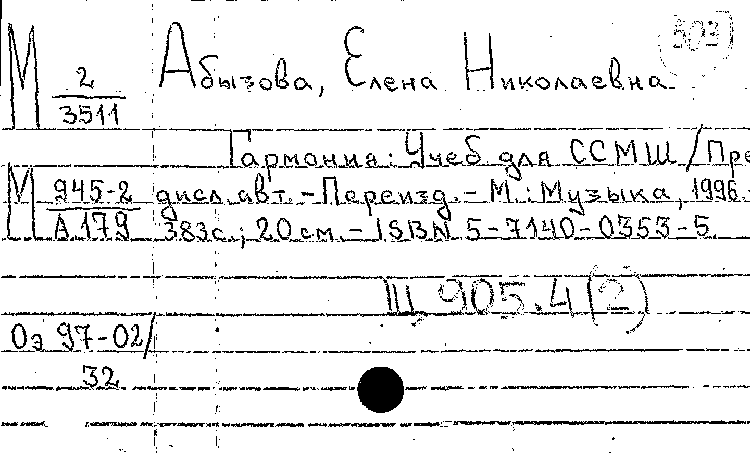 М 2/3511 Абызова, Елена Николаевна 303
Гармония: Учеб для ССМШ / Пре
М 945-2/А 179 дисл. авт. - Переизд. - М.: Музыка, 1996.-
383с.; 20см. - ISBN 5-7140-0353-5.
Щ 905.4(2)
Оэ 97-02/
32